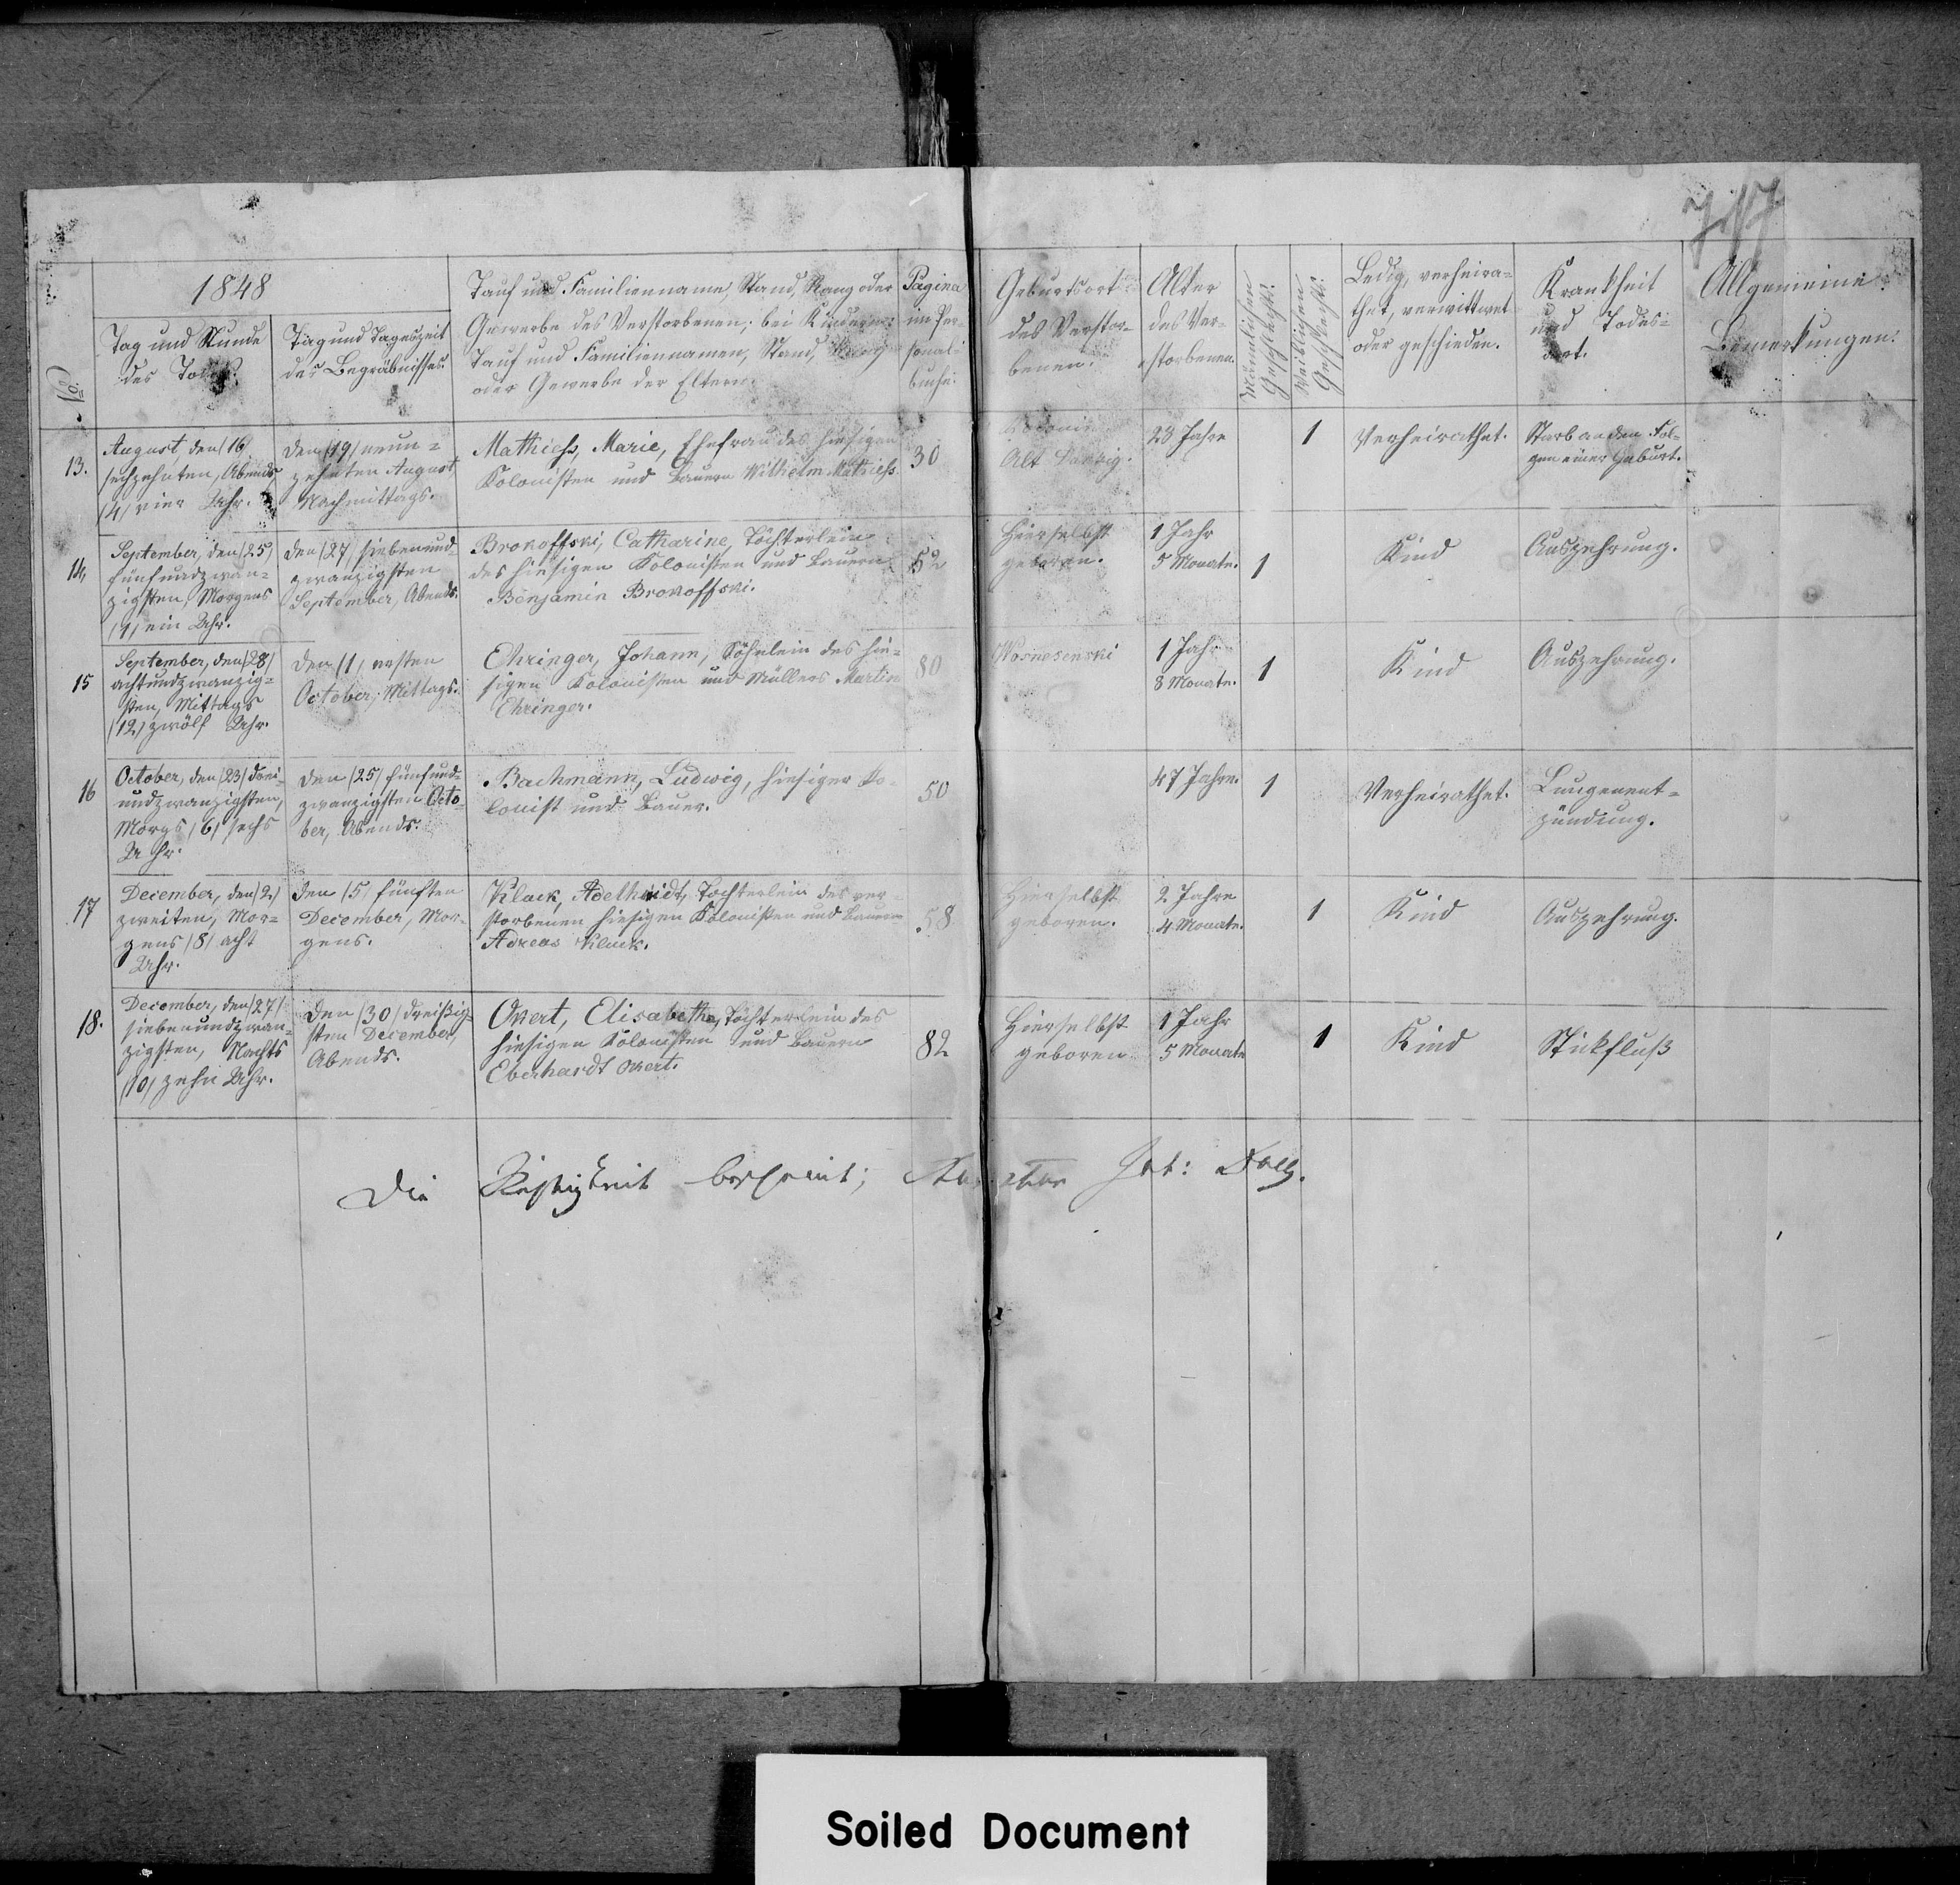 1848
No.
Tag und Stunde
des Todes.
Tag und Tageszeit
des Begräbnisses.
Tauf und Familienname, Stand, Rang oder
Gewerbe des Verstorbenen; bei Kindern:
Tauf und Familiennamen, Stand, Rang
oder Gewerbe der Eltern.
Pagina
im Per-
sonal-
buche.
Geburtsort
des Verstor-
benen.
Alter
des Ver-
storbenen.
Männlichen
Geschlechts.
Weiblichen
Geschlechts.
Ledig, verheira-
thet, verwittwet
oder geschieden.
Krankheit
und Todes-
art.
Allgemeine
Bemerkungen.
13.
August, den /16/
sechzehnten, Abends
/4/ vier Uhr.
den /19/ neun-
zehnten August,
Nachmittags.
Mathiehs, Marie, Ehefrau des hiesigen
Kolonisten und Bauern Wilhelm Mathiehs.
30
Kolonie
Alt Danzig.
23 Jahre
1
Verheirathet.
Starb an den Fol-
gen einer Geburt.
14.
September, den /25/
fünfundzwan-
zigsten, Morgens
/1/ ein Uhr.
den /27/ siebenund-
zwanzigsten
September, Abends.
Brokoffski, Catharine, Töchterlein
des hiesigen Kolonisten und Bauern
Benjamin Brokoffski.
52
Hierselbst
geboren.
1 Jahr
5 Monate.
1
Kind
Auszehrung.
15
September, den /28/
achtundzwanzig-
sten, Mittags
/12/ zwölf Uhr.
den /1/ ersten
October, Mittags.
Ehringer, Johann, Söhnlein des hie-
sigen Kolonisten und Müllers Martin
Ehringer.
80
Wosnesenski
1 Jahr
8 Monate.
1
Kind
Auszehrung.
16
October, den /23/ drei-
undzwanzigsten,
Morgs /6/ sechs
Uhr.
den /25/ fünfund-
zwanzigsten Octo-
ber, Abends.
Bachmann, Ludwig, hiesiger Ko-
lonist und Bauer.
50
47 Jahre.
1
Verheirathet.
Lungenent-
zündung.
17
December, den /2/
zweiten, Mor-
gens /8/ acht
Uhr.
den /5/ fünften
December, Mor-
gens.
Kluck, Adelheidt, Töchterlein des ver-
storbenen hiesigen Kolonisten und Bauern
Adreas Kluck.
58
Hierselbst
geboren.
2 Jahre
4 Monate.
1
Kind
Auszehrung.
18.
December, den /27/
siebenundzwan-
zigsten, Nachts
/10/ zehn Uhr.
den /30/ dreißig-
sten December,
Abends.
Okert, Elisabethe, Töchterlein des
hiesigen Kolonisten und Bauern
Eberhardt Okert.
82
Hierselbst
geboren
1 Jahr
5 Monate
1
Kind
Stickfluß
Die Richtigkeit bescheint;
Soiled Document